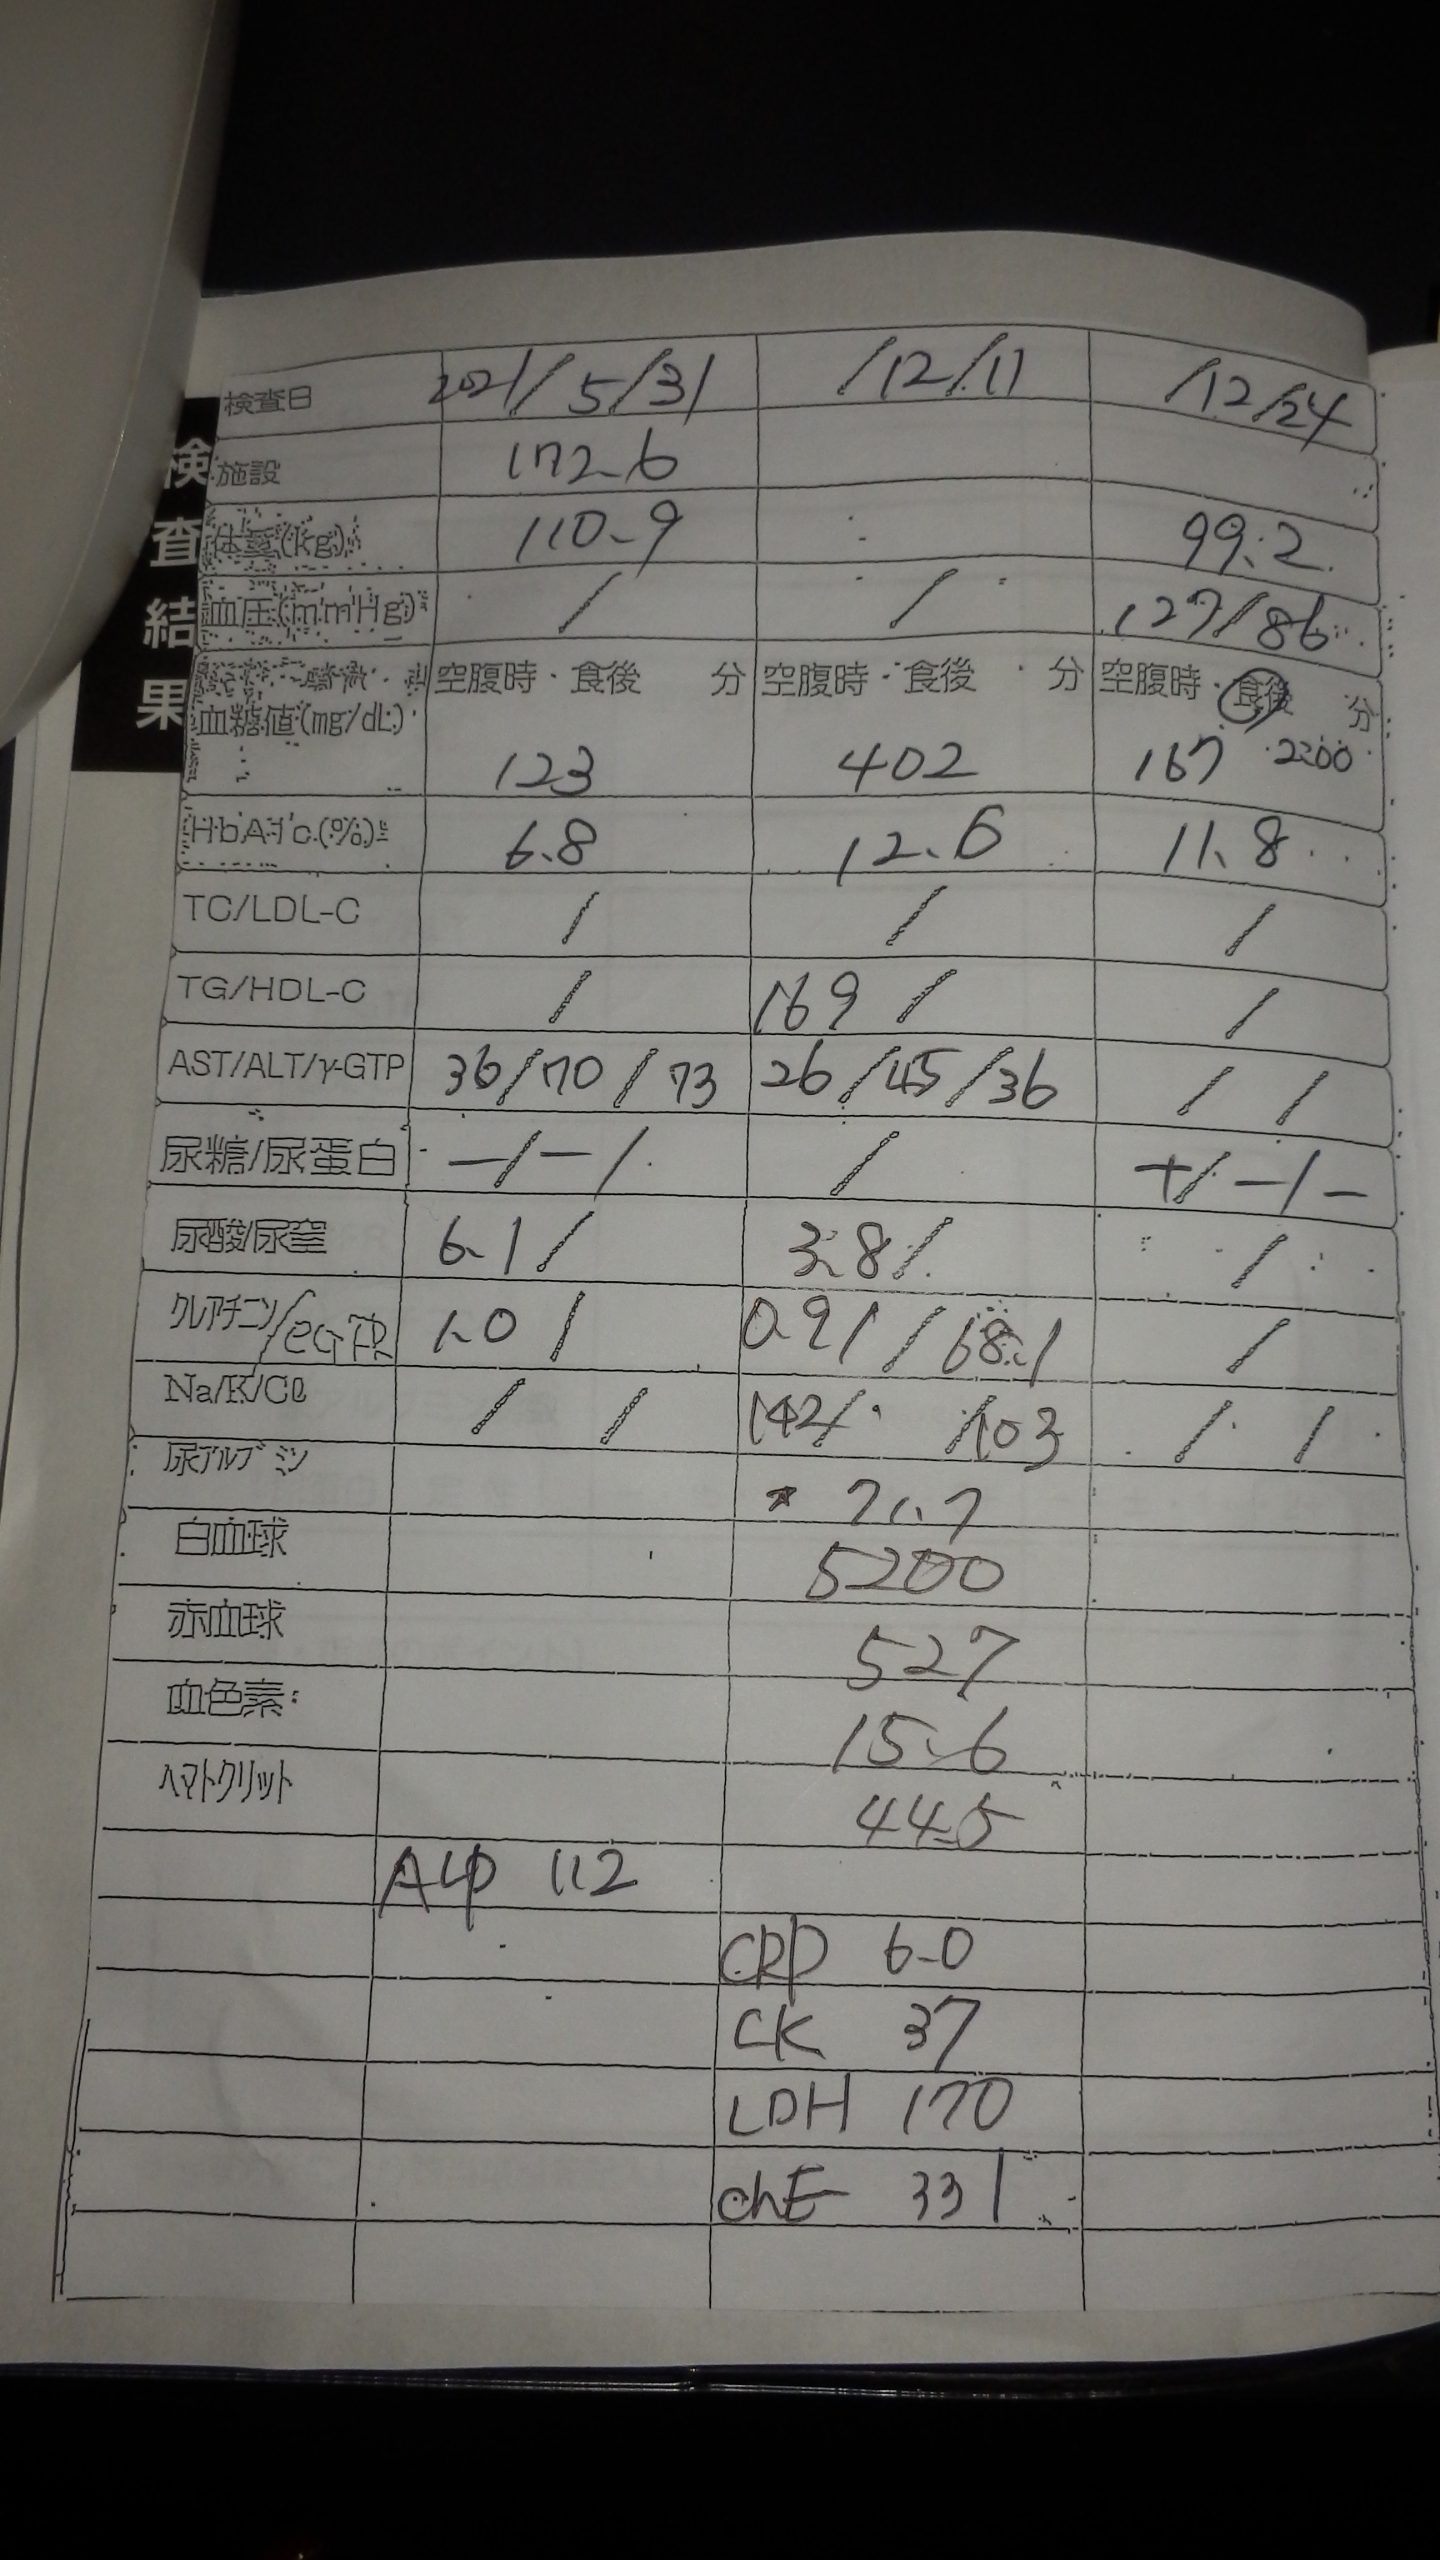 検査結果
検査日 2021/5/31 /12/11 /12/24
施設 172.6
体重(kg) 110.9 99.2
血圧(mmHg) / / 127/86
空腹時・食後 分 空腹時・食後 分 空腹時・食後 分
血糖値(mg/dL) 123 402 167 2:00
HbA1c(%) 6.8 12.6 11.8
TC/LDL-C / / /
TG/HDL-C / 169 / /
AST/ALT/γ-GTP 36/70/73 26/45/36 / /
尿糖/尿蛋白 -/-/ / +/-/-
尿酸/尿窒 6.1/ 3.8/ /
クレアチニン/eGFR 1.0/ 0.91/68.1 /
Na/K/Cl / / 142/ /103 / /
尿アルブミン * 71.7
白血球 5200
赤血球 527
血色素 15.6
ヘマトクリット 44.5
ALP 112
CRP 6.0
CK 37
LDH 170
chE 331